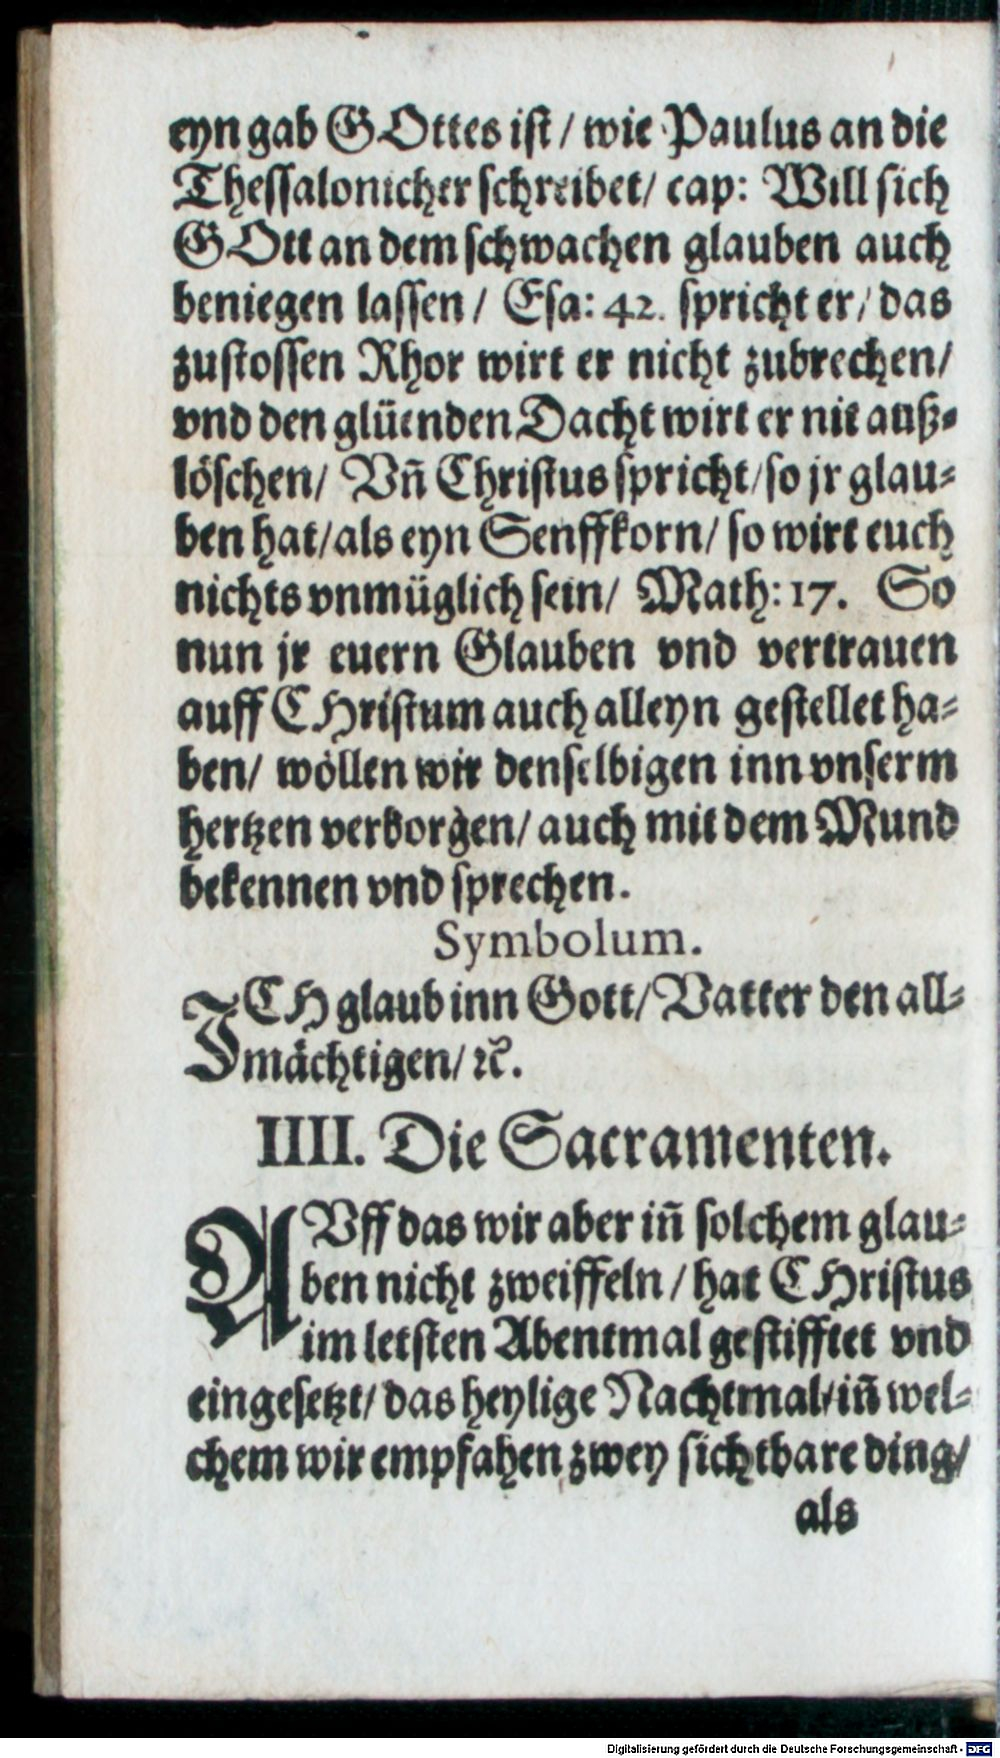 eyn gab GOttes ist / wie Paulus an die
Thessalonicher schreibet / cap: Will sich
GOtt an dem schwachen glauben auch
beniegen lassen / Esa: 42. spricht er / das
zustossen Rhor wirt er nicht zubrechen /
vnd den glüenden Dacht wirt er nit auß-
löschen / Vñ Christus spricht / so jr glau-
ben hat / als eyn Senffkorn / so wirt euch
nichts vnmüglich sein / Math: 17. So
nun jr euern Glauben vnd vertrauen
auff CHristum auch alleyn gestellet ha-
ben / wöllen wir denselbigen inn vnserm
hertzen verborgen / auch mit dem Mund
bekennen vnd sprechen.
Symbolum.
ICH glaub inn Gott / Vatter den all-
mächtigen / ꝛc.
IIII. Die Sacramenten.
AUff das wir aber iñ solchem glau-
ben nicht zweiffeln / hat CHristus
im letsten Abentmal gestifftet vnd
eingesetzt / das heylige Nachtmal / iñ wel-
chem wir empfahen zwey sichtbare ding /
als
Digitalisierung gefördert durch die Deutsche Forschungsgemeinschaft - DFG